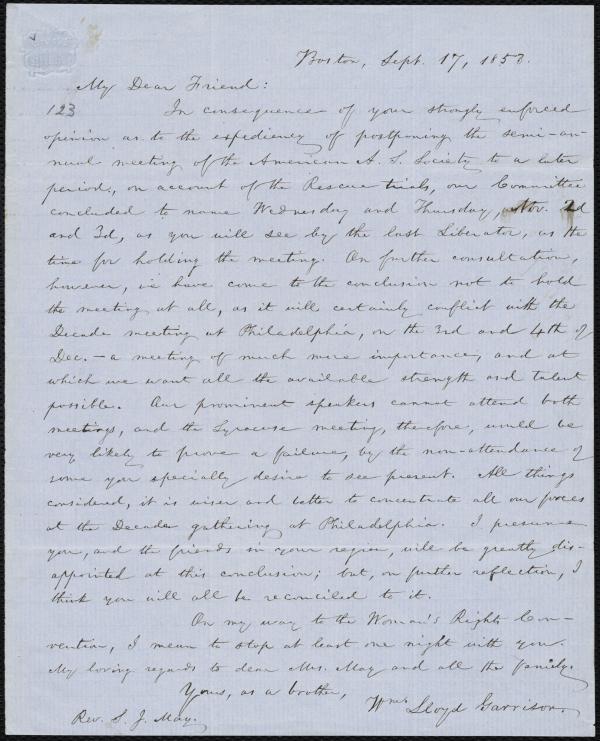 Boston, Sept. 17, 1853.
My Dear Friend:
123 In consequence of your strongly enforced
opinion as to the expediency of postponing the semi-an-
nual meeting of the American A. S. Society to a later
period, on account of the Rescue trials, our Committee
concluded to name Wednesday and Thursday, Nov. 2d
and 3d, as you will see by the last Liberator, as the
time for holding the meeting. On further consultation,
however, we have come to the conclusion not to hold
the meeting at all, as it will certainly conflict with the
Decade meeting at Philadelphia, on the 3rd and 4th of
Dec. — a meeting of much more importance, and at
which we want all the available strength and talent
possible. Our prominent speakers cannot attend both
meetings, and the Syracuse meeting, therefore, would be
very likely to prove a failure, by the non-attendance of
some you specially desire to see present. All things
considered, it is wiser and better to concentrate all our forces
at the Decade gathering at Philadelphia. I presume
you, and the friends in your region, will be greatly dis-
appointed at this conclusion; but, on further reflection, I
think you will all be reconciled to it.
On my way to the Woman's Rights Con-
vention, I mean to stop at least one night with you.
My loving regards to dear Mrs. May and all the family.
Yours, as a brother,
Wm. Lloyd Garrison.
Rev. S. J. May.